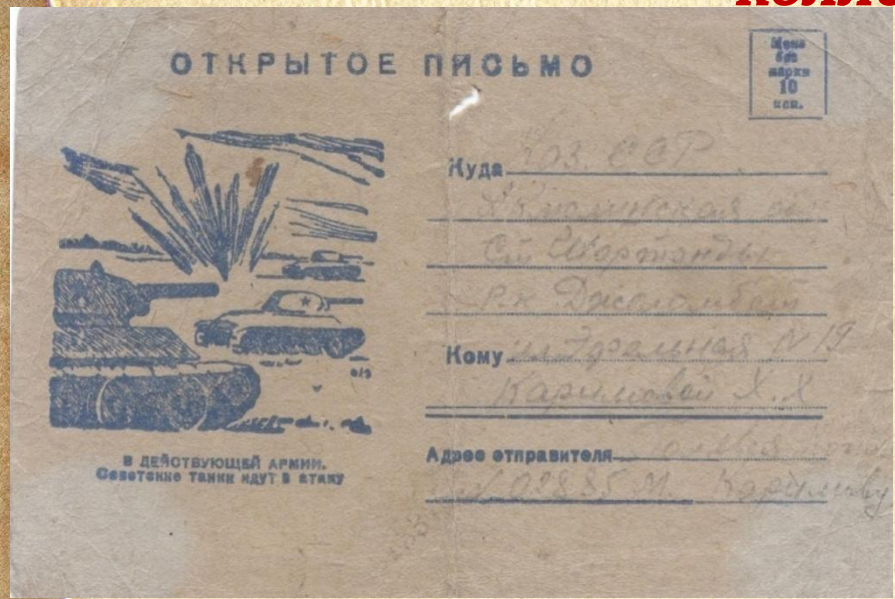 ОТКРЫТОЕ ПИСЬМО
Цена
без
марки
10
коп.
Куда Каз. ССР
Акмолинская об.
Ст Шортанды
Р.к
Кому N 19
Каримовой Х.Х
Адрес отправителя Полевая
N 02885 М. Каримову
В ДЕЙСТВУЮЩЕЙ АРМИИ.
Советские танки идут в атаку